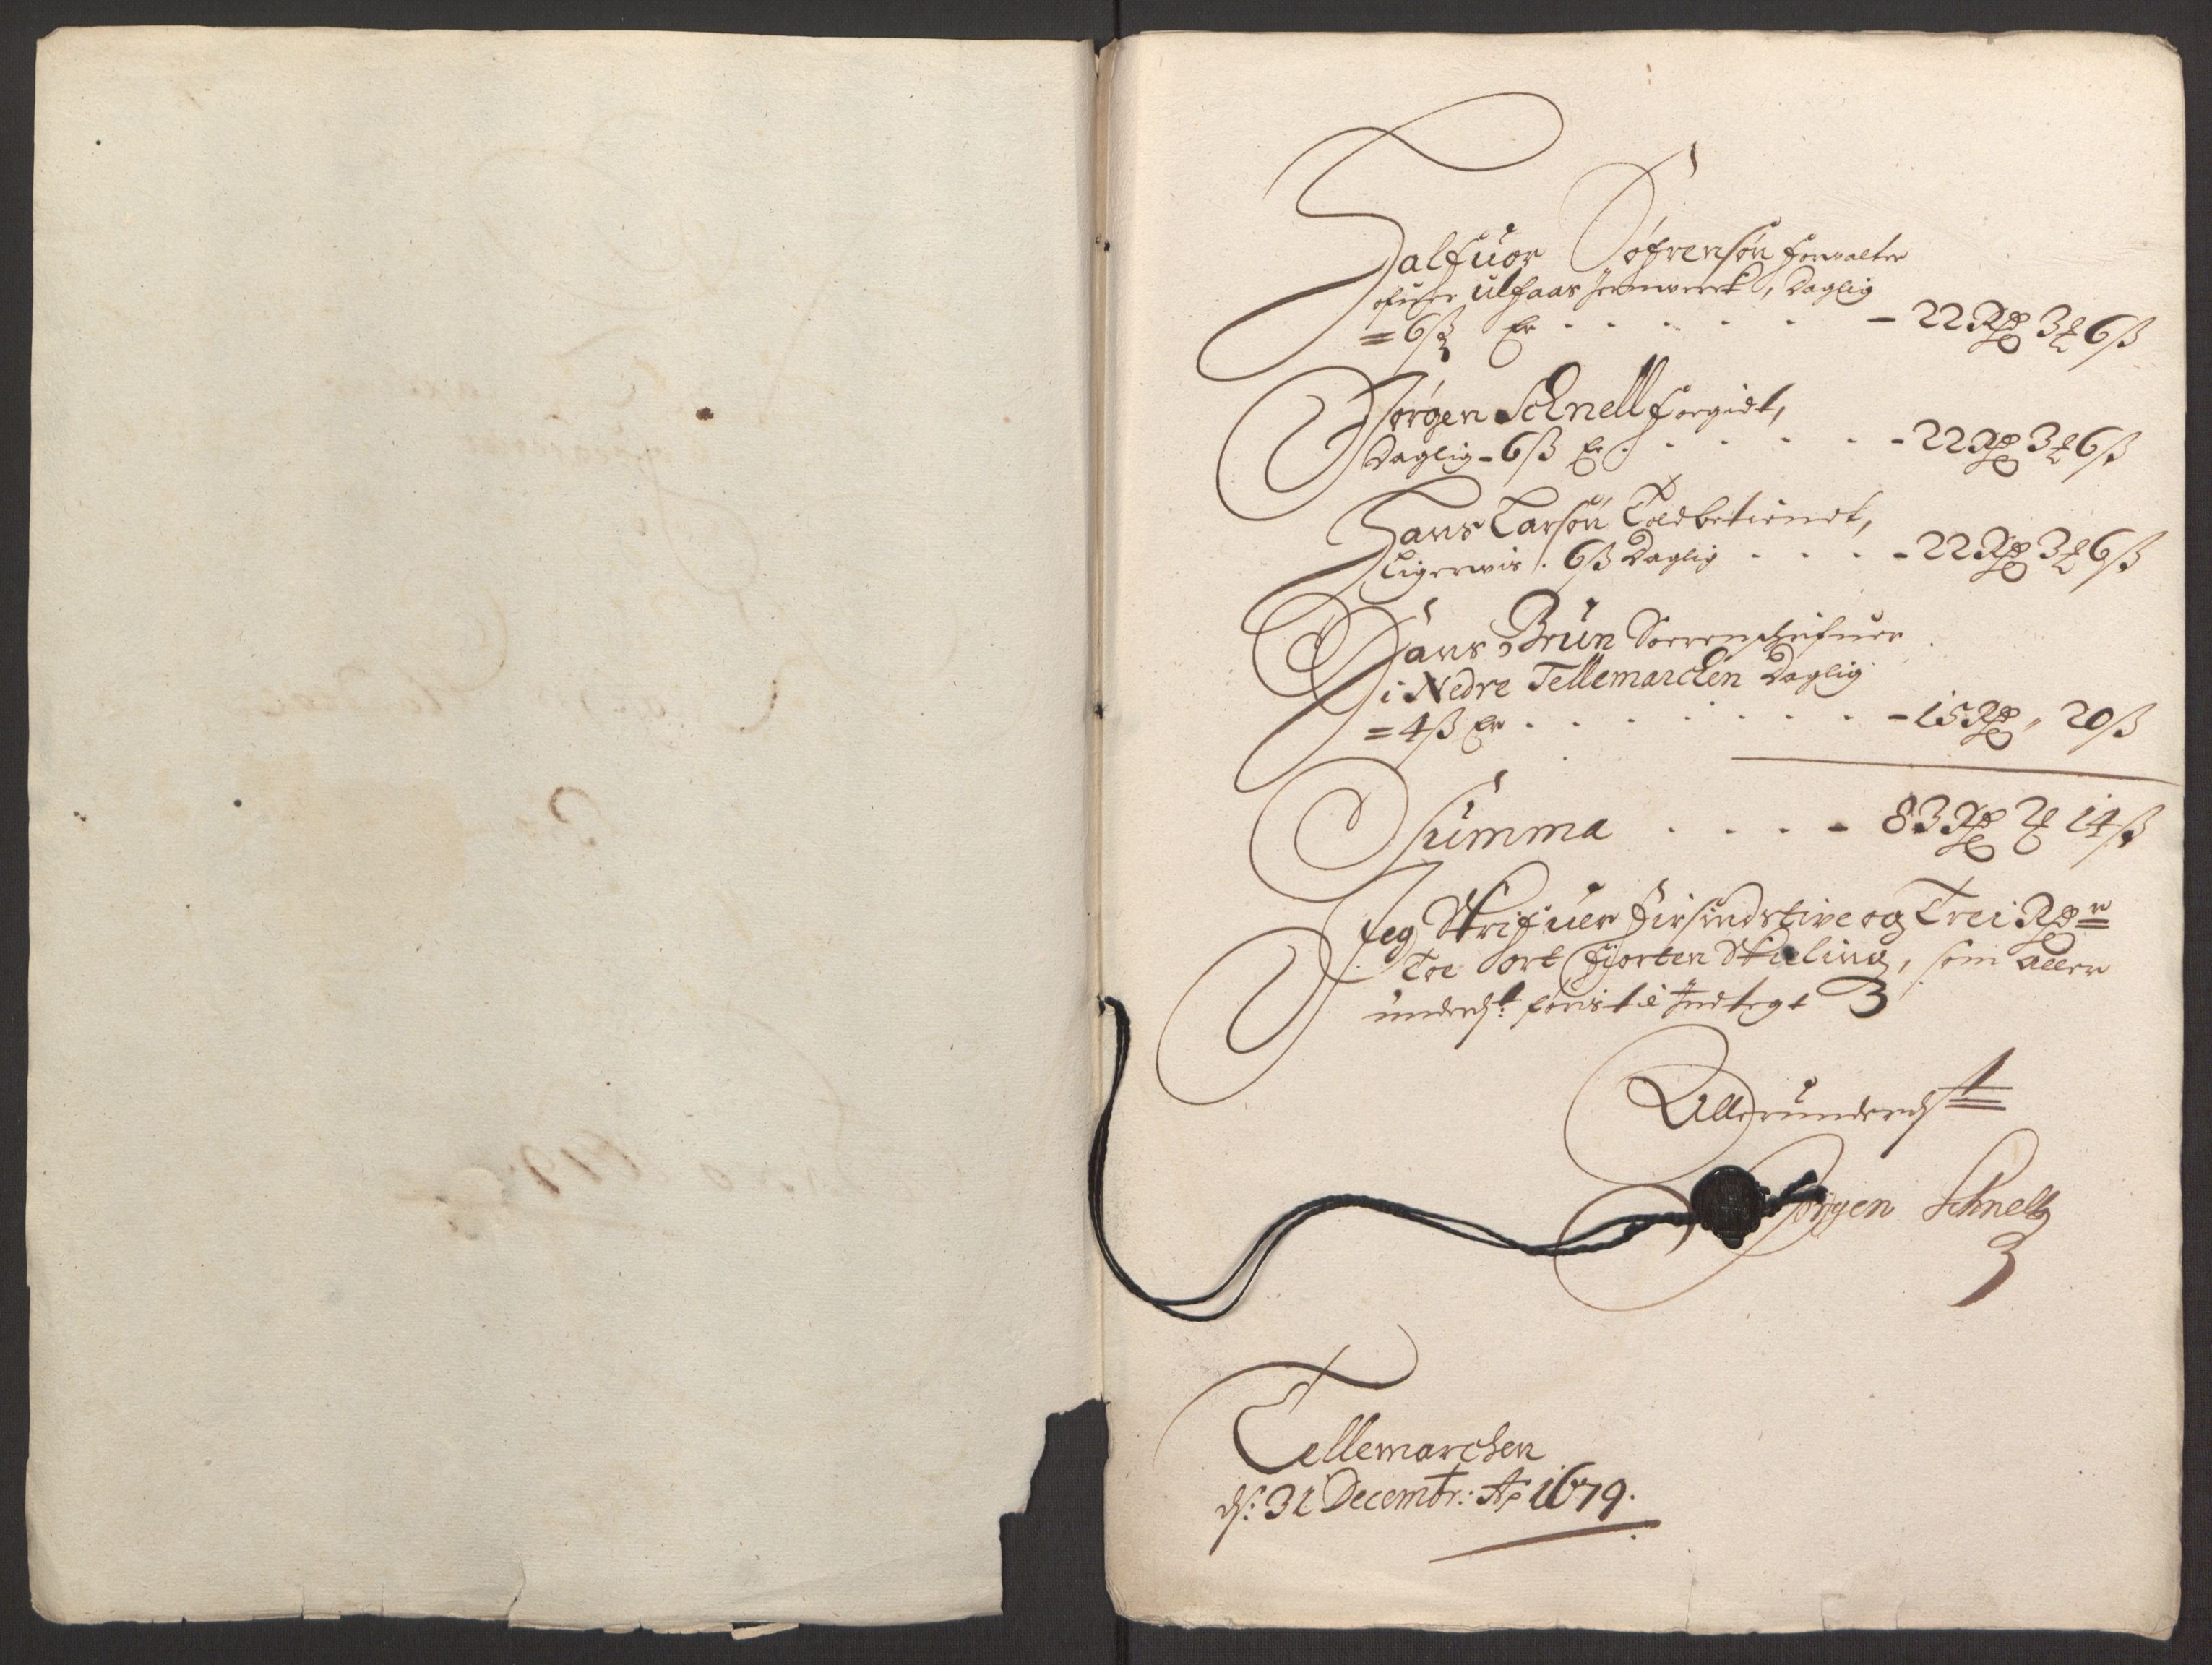 Halfuor Søfrensøn Forvalter
ofuer Ulfaas Jernwerk, Daglig
= 6 ß Er . . . . . . - 22 Rdr 3 ₰ 6 ß
Jørgen Schnell Fogidt,
Daglig - 6 ß Er . . . . . - 22 Rdr 3 ₰ 6 ß
Hans Larsøn Toldbetiendt,
Ligerwis . 6 ß Daglig . . . . - 22 Rdr 3 ₰ 6 ß
Hans Brun Sorrenschrifuer
i Nedre Tellemarchen Daglig
= 4 ß Er . . . . . . . . - 15 Rdr „ 20 ß
Summa . . . . - 83 Rdr 2 ₰ 14 ß
Jeg Skrifuer Firsindstive og Trei Rdr
Toe ort Fiorten Skeling, som aller
underdst: föris til Indtegt
Allerunderdst
Jørgen Schnell
Tellemarchen
ds: 31 Decembr: Ao 1679.